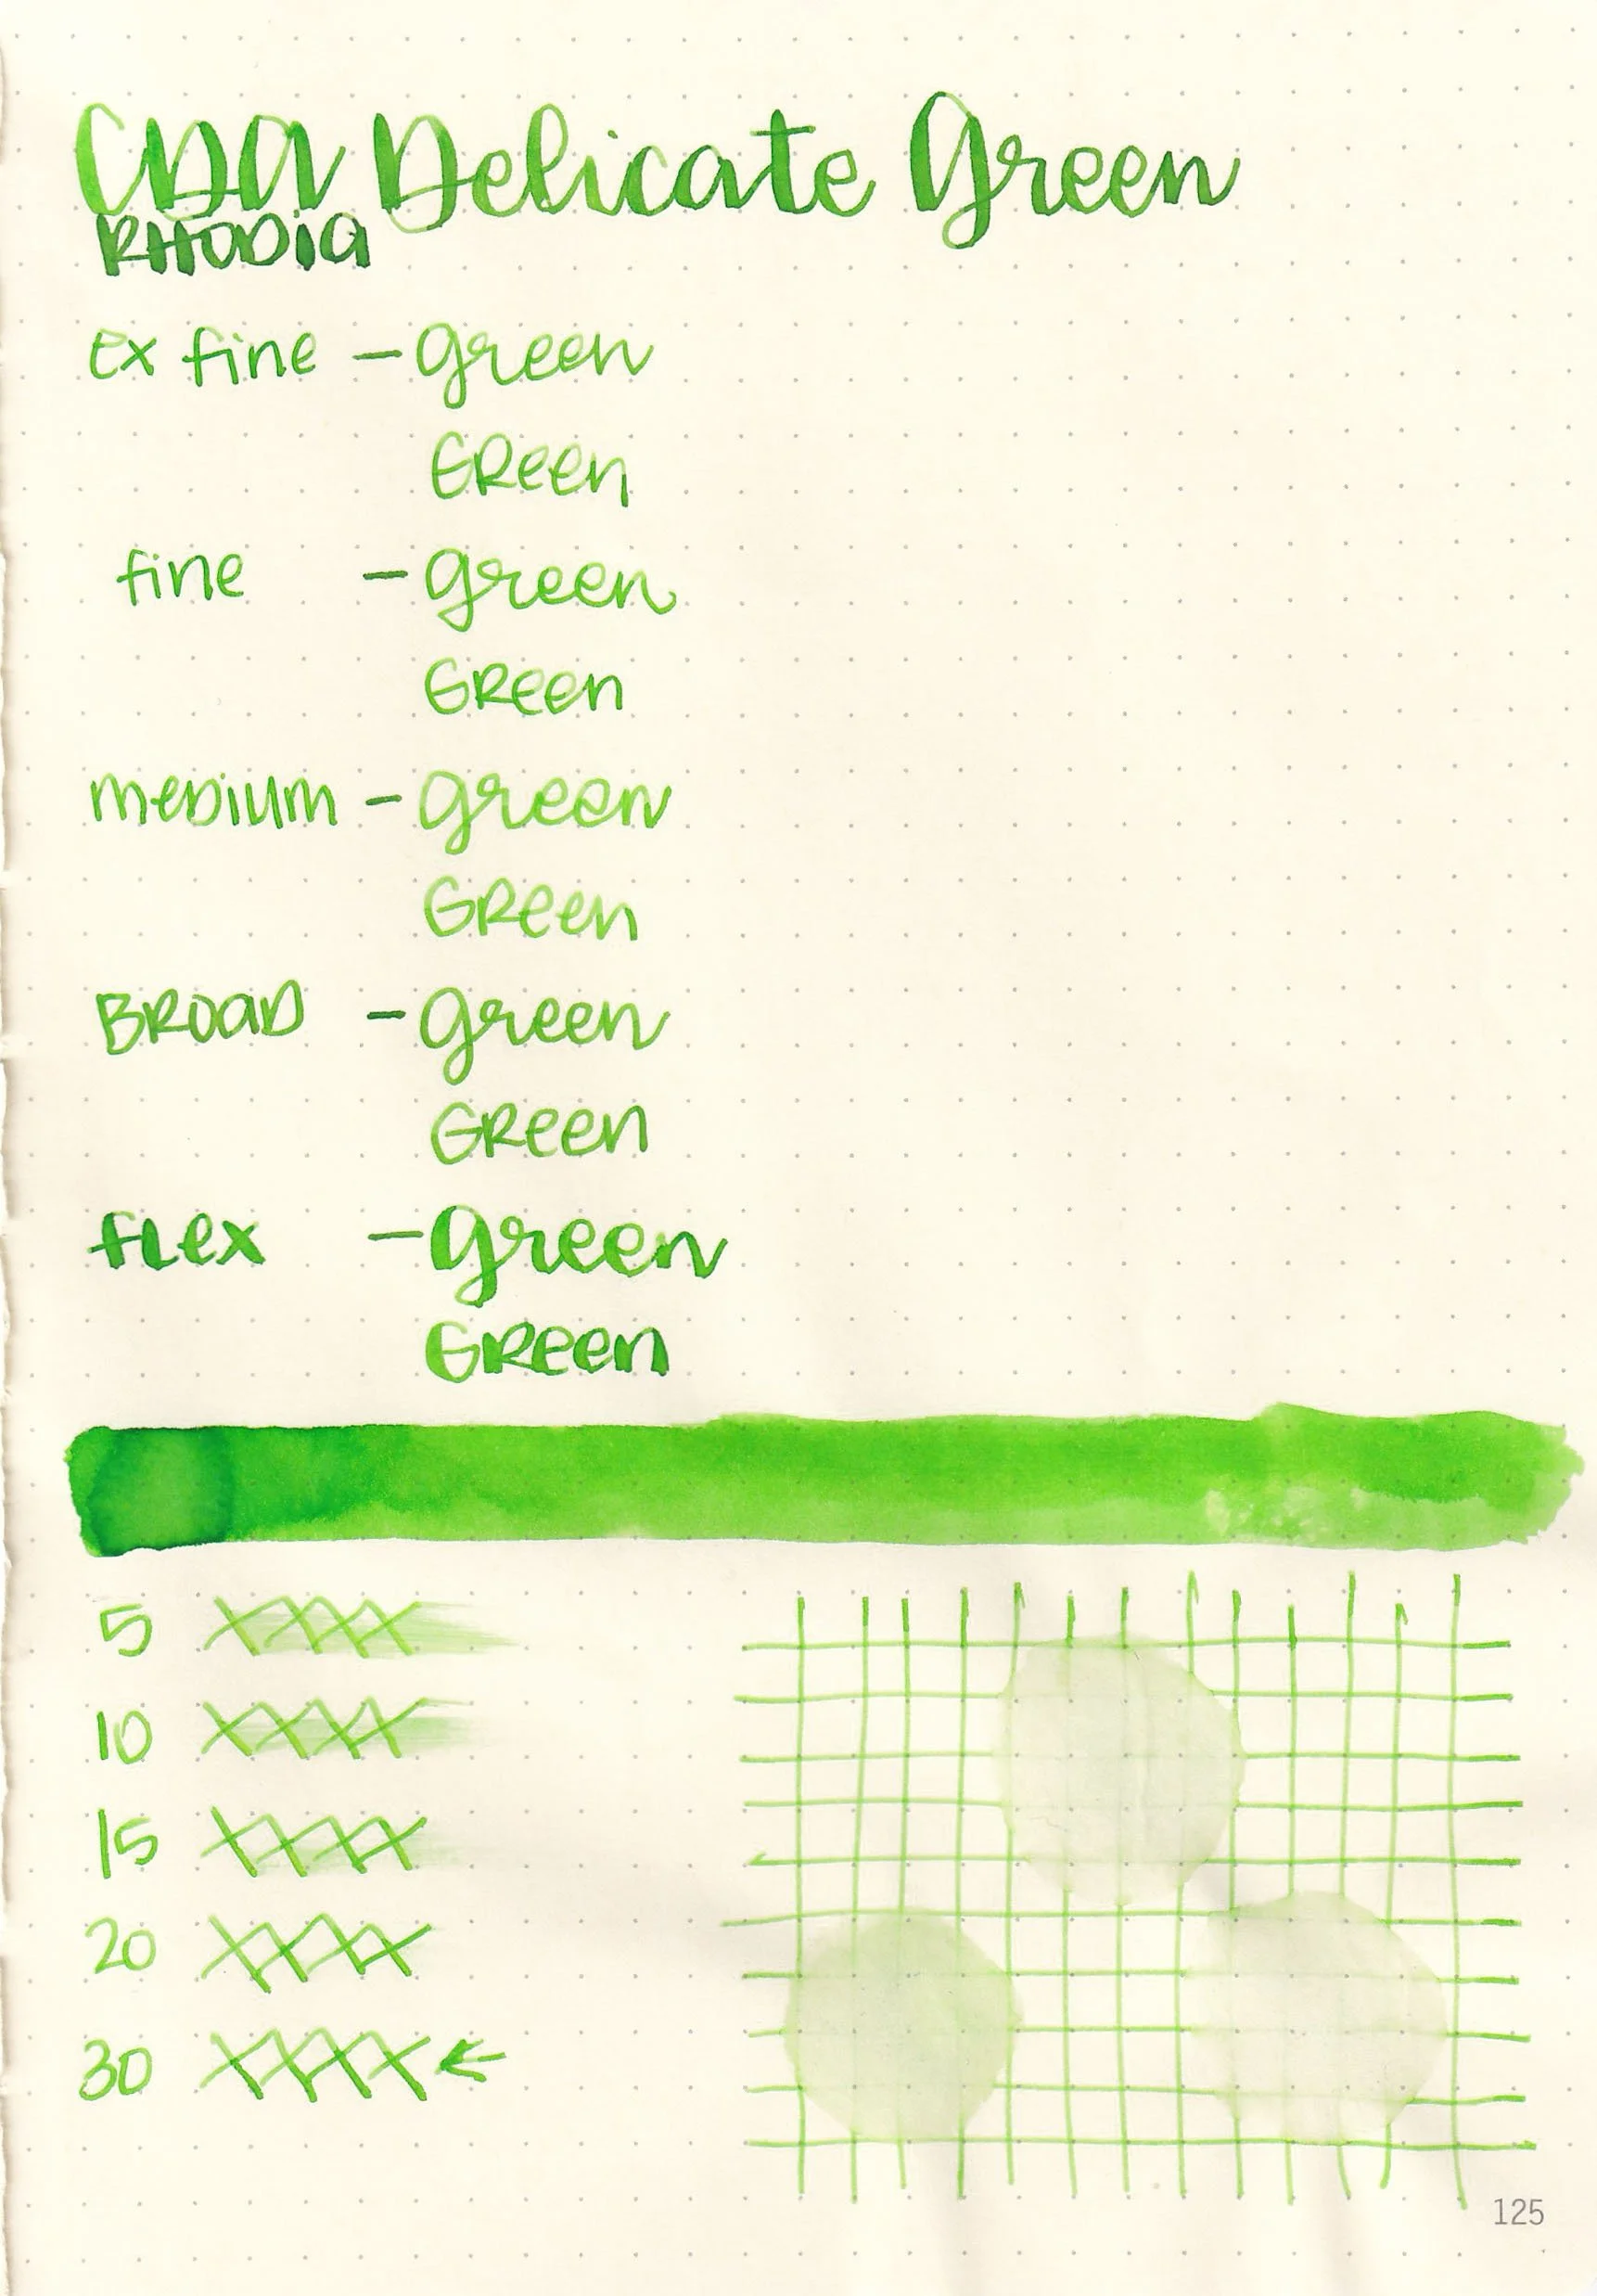 CDA Delicate Green
RHODIA
Ex fine - green
GReen
fine - green
GReen
meDium - green
GReen
BROAD - green
GReen
fLex - green
GReen
5 XXXX
10 XXXX
15 XXXX
20 XXXX
30 XXXX ←
125